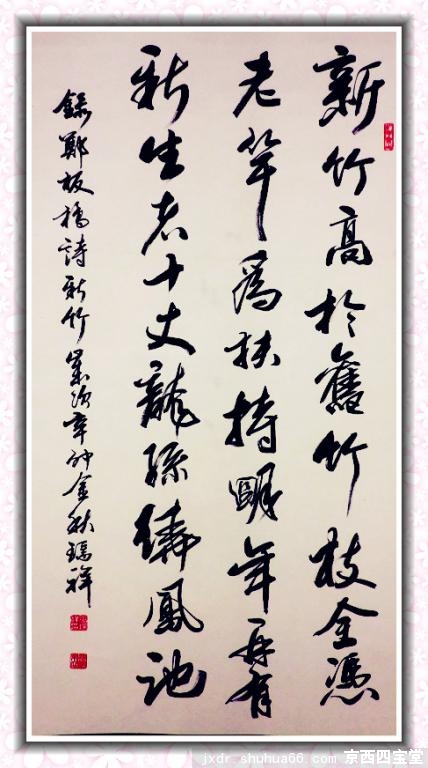 新竹高於舊竹枝全憑
老竿爲扶持明年再有
新生者十丈龍孫繞鳳池
錄鄭板橋詩新竹歲次辛卯金秋祥
jxdr.shuhua66.com 京西四宝堂